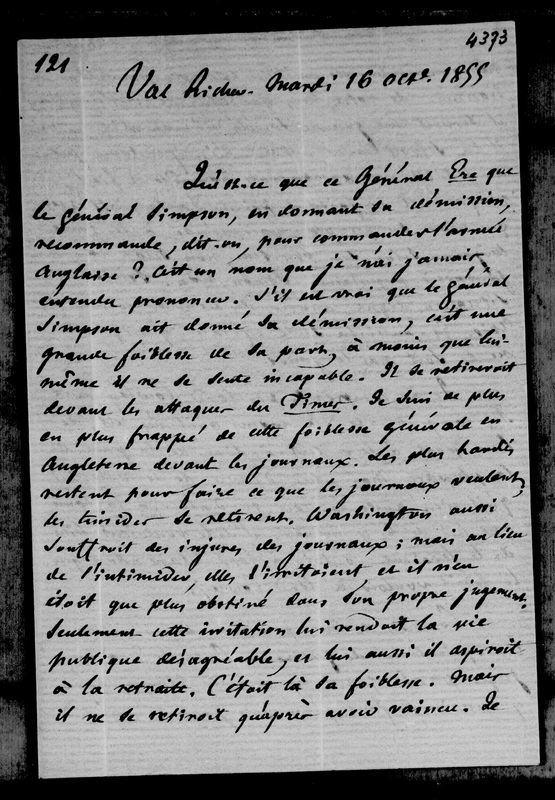 121
4393
Val Richer. Mardi 16 Octe. 1855
Qu'est-ce que ce Général Ere que
le général Simpson, en donnant sa démission,
recommande, dit-on, pour commander l'armée
Anglaise ? C'est un nom que je n'ai jamais
entendu prononcer. S'il est vrai que le général
Simpson ait donné sa démission, c'est une
grande foiblesse de sa part, à moins que lui-
même il ne se sente incapable. Il se retireroit
devant les attaques du Times. Je suis de plus
en plus frappé de cette foiblesse générale en
Angleterre devant les journaux. Les plus hardis
restent pour faire ce que les journaux veulent,
les timides se retirent. Washington aussi
souffroit des injures des journaux ; mais au lieu
de l'intimider, elles l'irritoient et il n'en
étoit que plus obstiné dans son propre jugement.
Seulement cette irritation lui rendoit la vie
publique désagréable, et lui aussi il aspiroit
à la retraite. C'étoit là sa foiblesse. Mais
il ne se retiroit qu'après avoir vaincu. Je